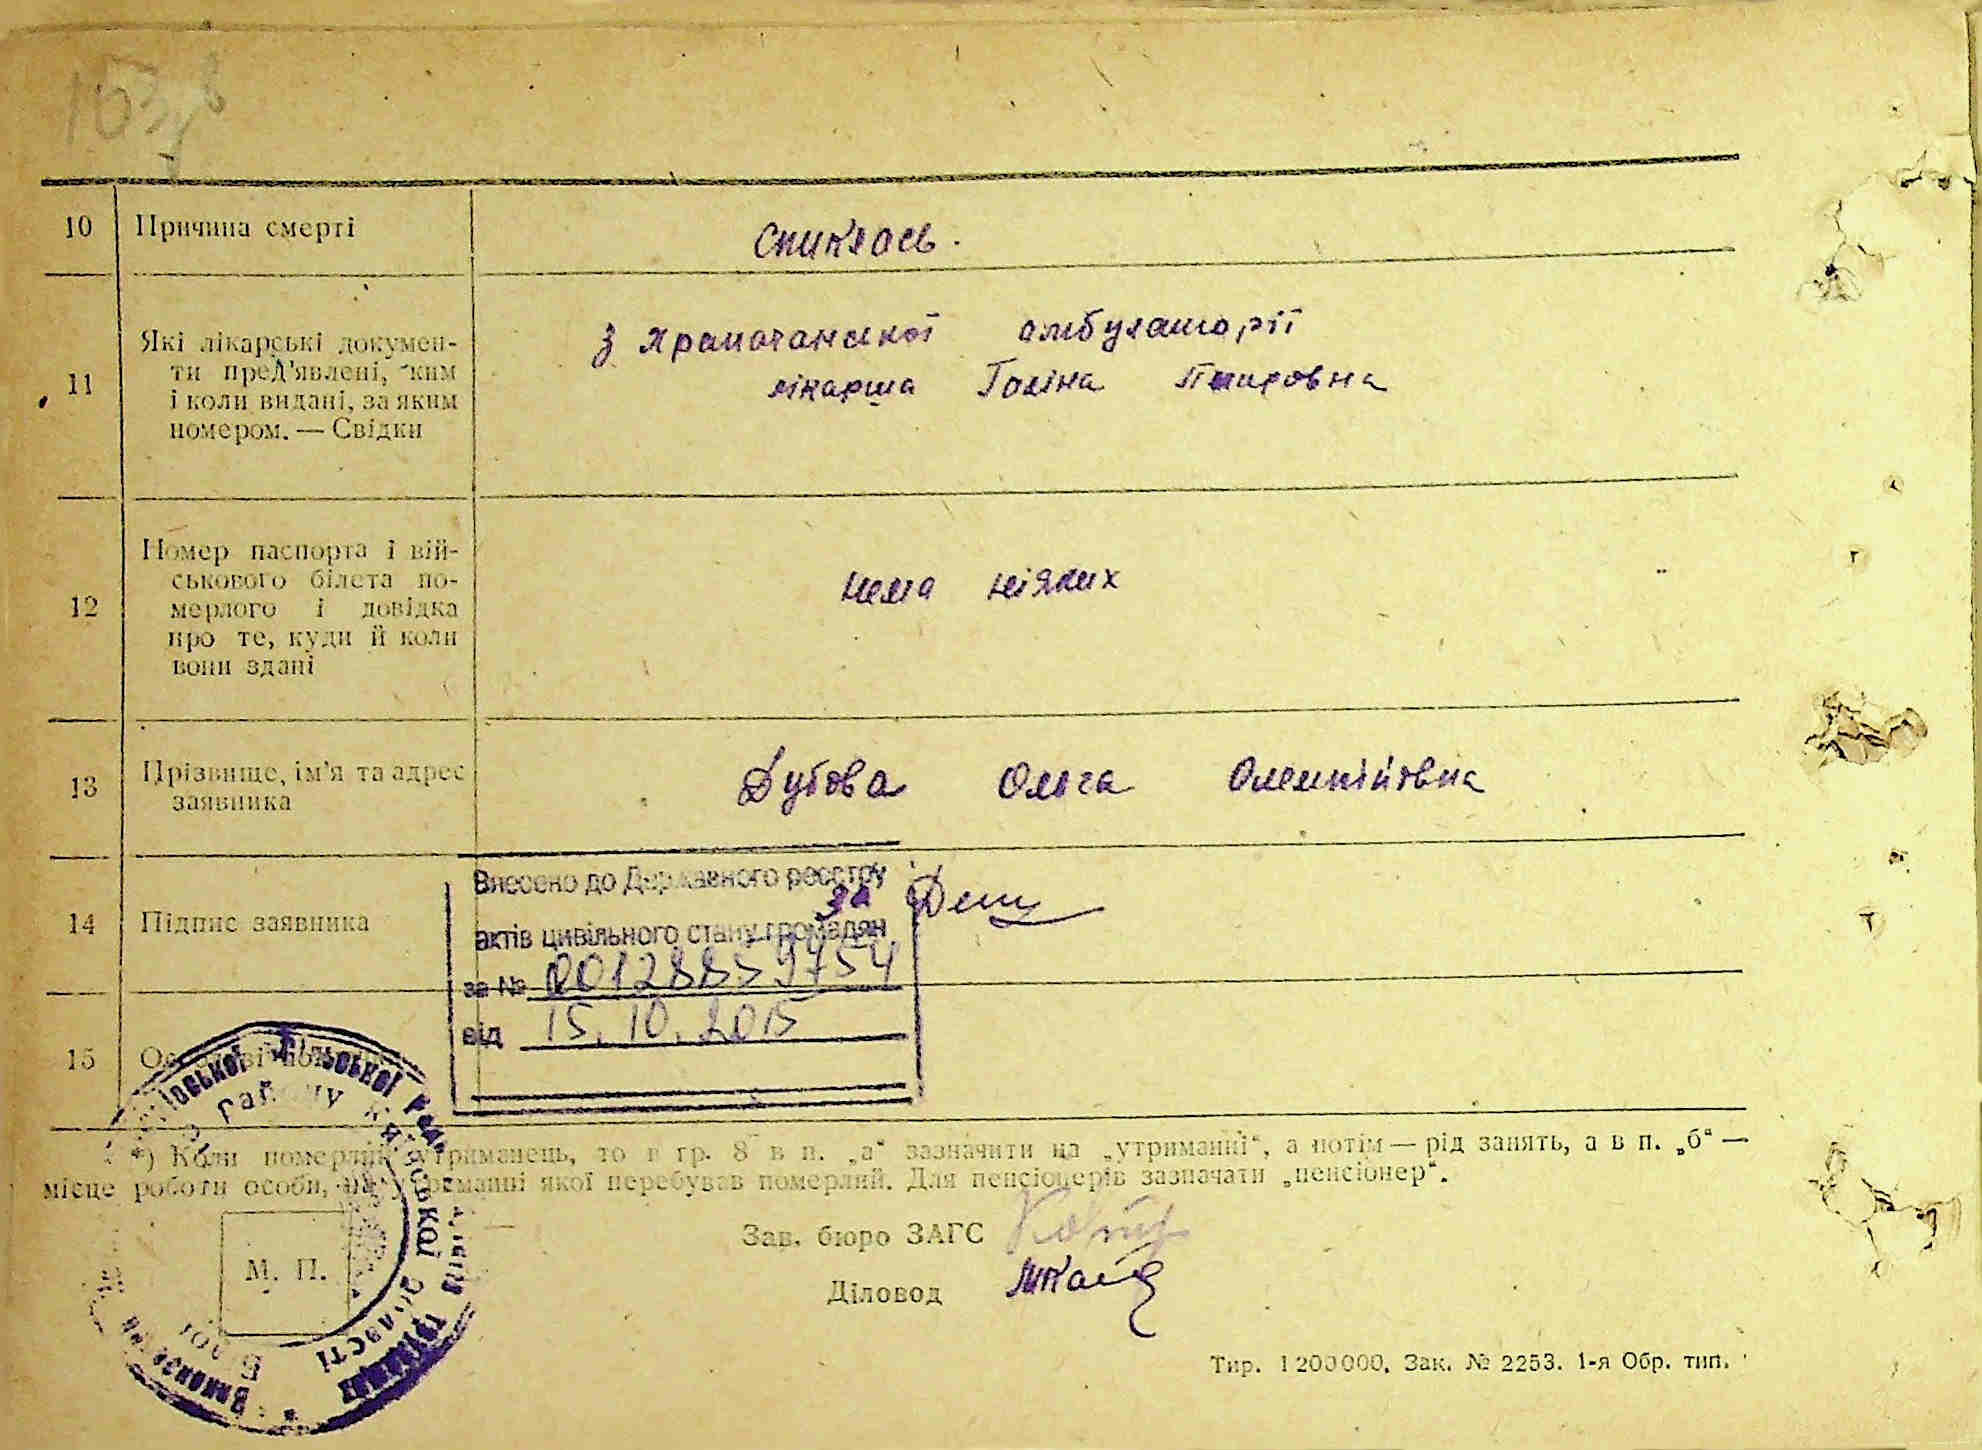 10 Причина смерті
Спиклась.
11 Які лікарські докумен-
ти пред'явлені, ким
і коли видані, за яким
номером. — Свідки
з амбулаторії
лікарша Галіна
12 Номер паспорта і вій-
ськового білета по-
мерлого і довідка
про те, куди й коли
вони здані
нема ніяких
13 Прізвище, ім'я та адрес
заявника
Дубова Ольга
14 Підпис заявника
за
Внесено до Державного реєстру
актів цивільного стану громадян
за № 00128859754
від 15.10.2015
15
*) Коли померлий утриманець, то в гр. 8 в п. „а“ зазначити на „утриманні“, а потім — рід занять, а в п. „б“ —
місце роботи особи, на утриманні якої перебував померлий. Для пенсіонерів зазначати „пенсіонер“.
Зав. бюро ЗАГС
М. П.
Діловод
Тир. 1200000. Зак. № 2253. 1-я Обр. тип.